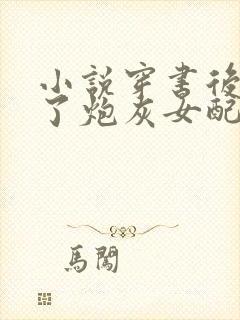 小說穿書後
了炮灰女配
馬闖